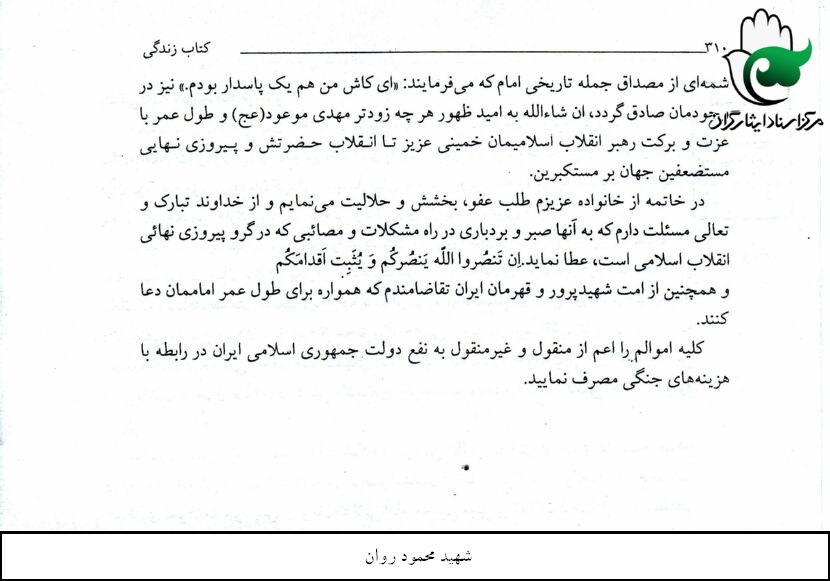 ۳۱۰ کتاب زندگی
شمه‌ای از مصداق جمله تاریخی امام که می‌فرمایند: «ای کاش من هم یک پاسدار بودم.» نیز در
وجودمان صادق گردد، ان شاءالله به امید ظهور هر چه زودتر مهدی موعود(عج) و طول عمر با
عزت و برکت رهبر انقلاب اسلامیمان خمینی عزیز تا انقلاب حضرتش و پیروزی نهایی
مستضعفین جهان بر مستکبرین.
در خاتمه از خانواده عزیزم طلب عفو، بخشش و حلالیت می‌نمایم و از خداوند تبارک و
تعالی مسئلت دارم که به آنها صبر و بردباری در راه مشکلات و مصائبی که در گرو پیروزی نهائی
انقلاب اسلامی است، عطا نماید.اِن تَنصُروا اللّه یَنصُرکُم وَ یُثَبِت اَقدامَکُم
و همچنین از امت شهیدپرور و قهرمان ایران تقاضامندم که همواره برای طول عمر اماممان دعا
کنند.
کلیه اموالم را اعم از منقول و غیرمنقول به نفع دولت جمهوری اسلامی ایران در رابطه با
هزینه‌های جنگی مصرف نمایید.
مرکز اسناد ایثارگران
شهید محمود روان